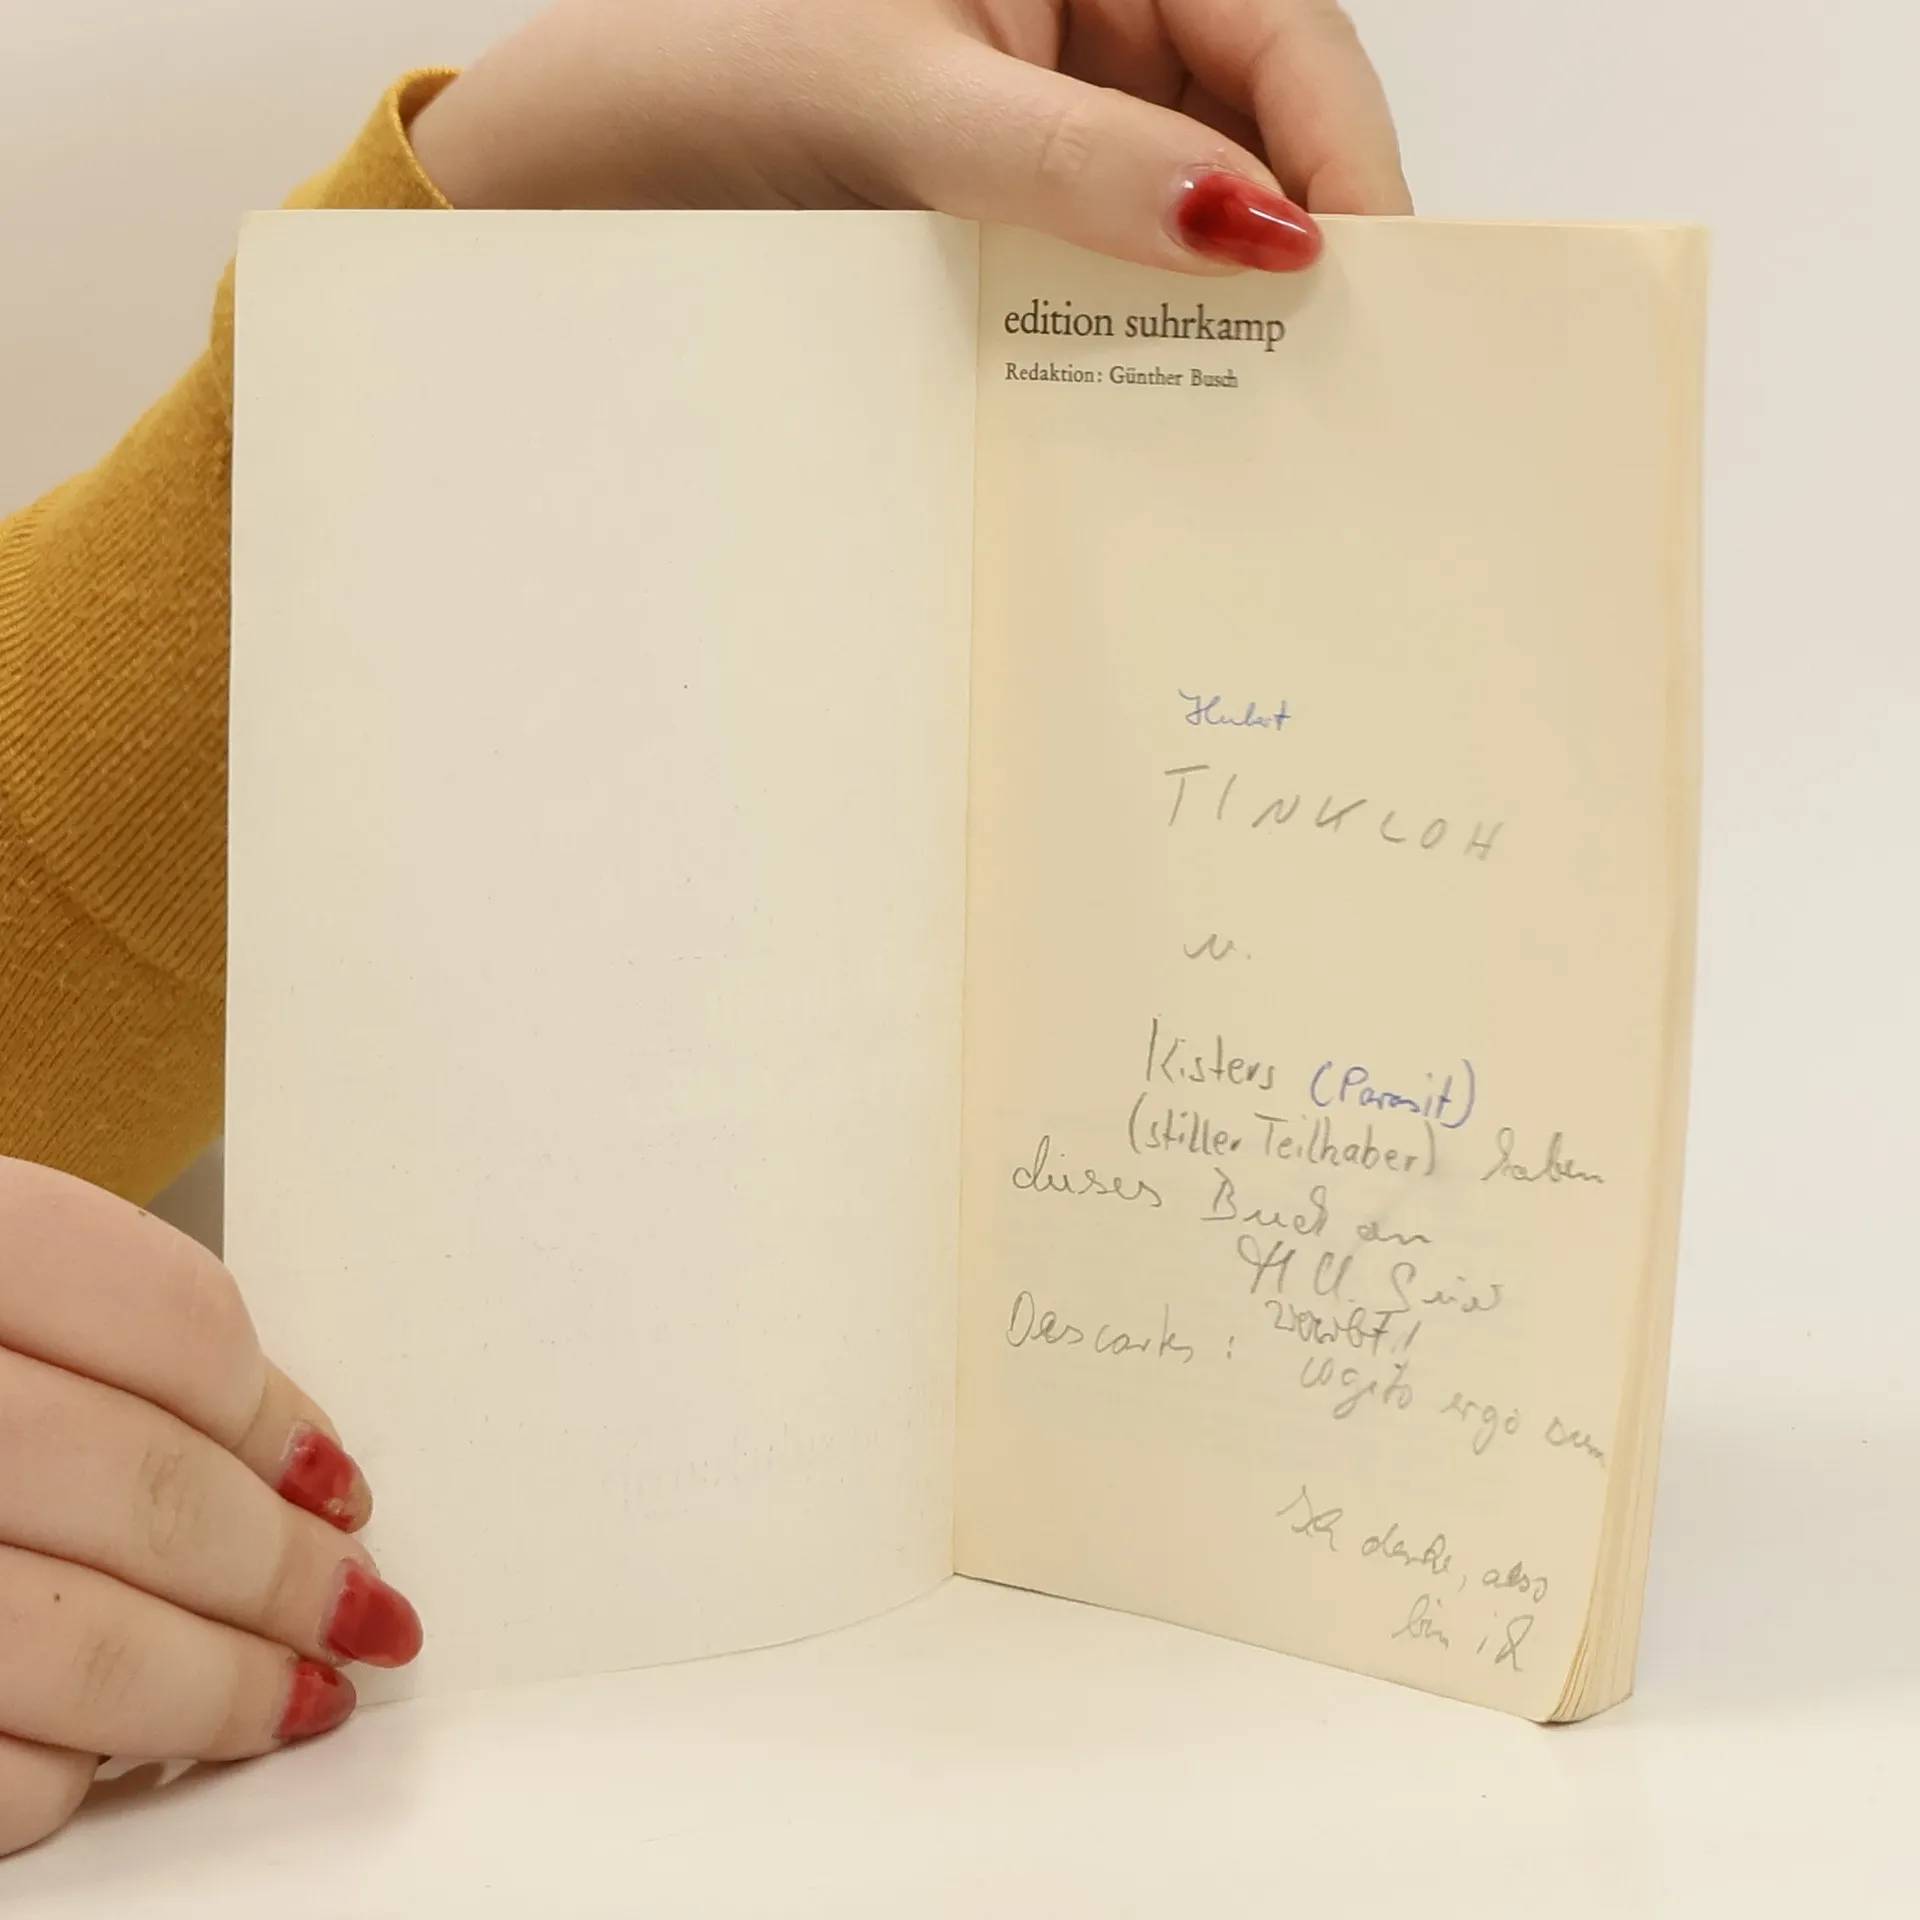 edition suhrkamp
Redaktion: Günther Busch
Hubert
TINKLOH
u.
Kisters (Parasit)
(stiller Teilhaber) haben
dieses Buch an
H U.
Descartes: cogito ergo sum
Ich denke, also
bin ich